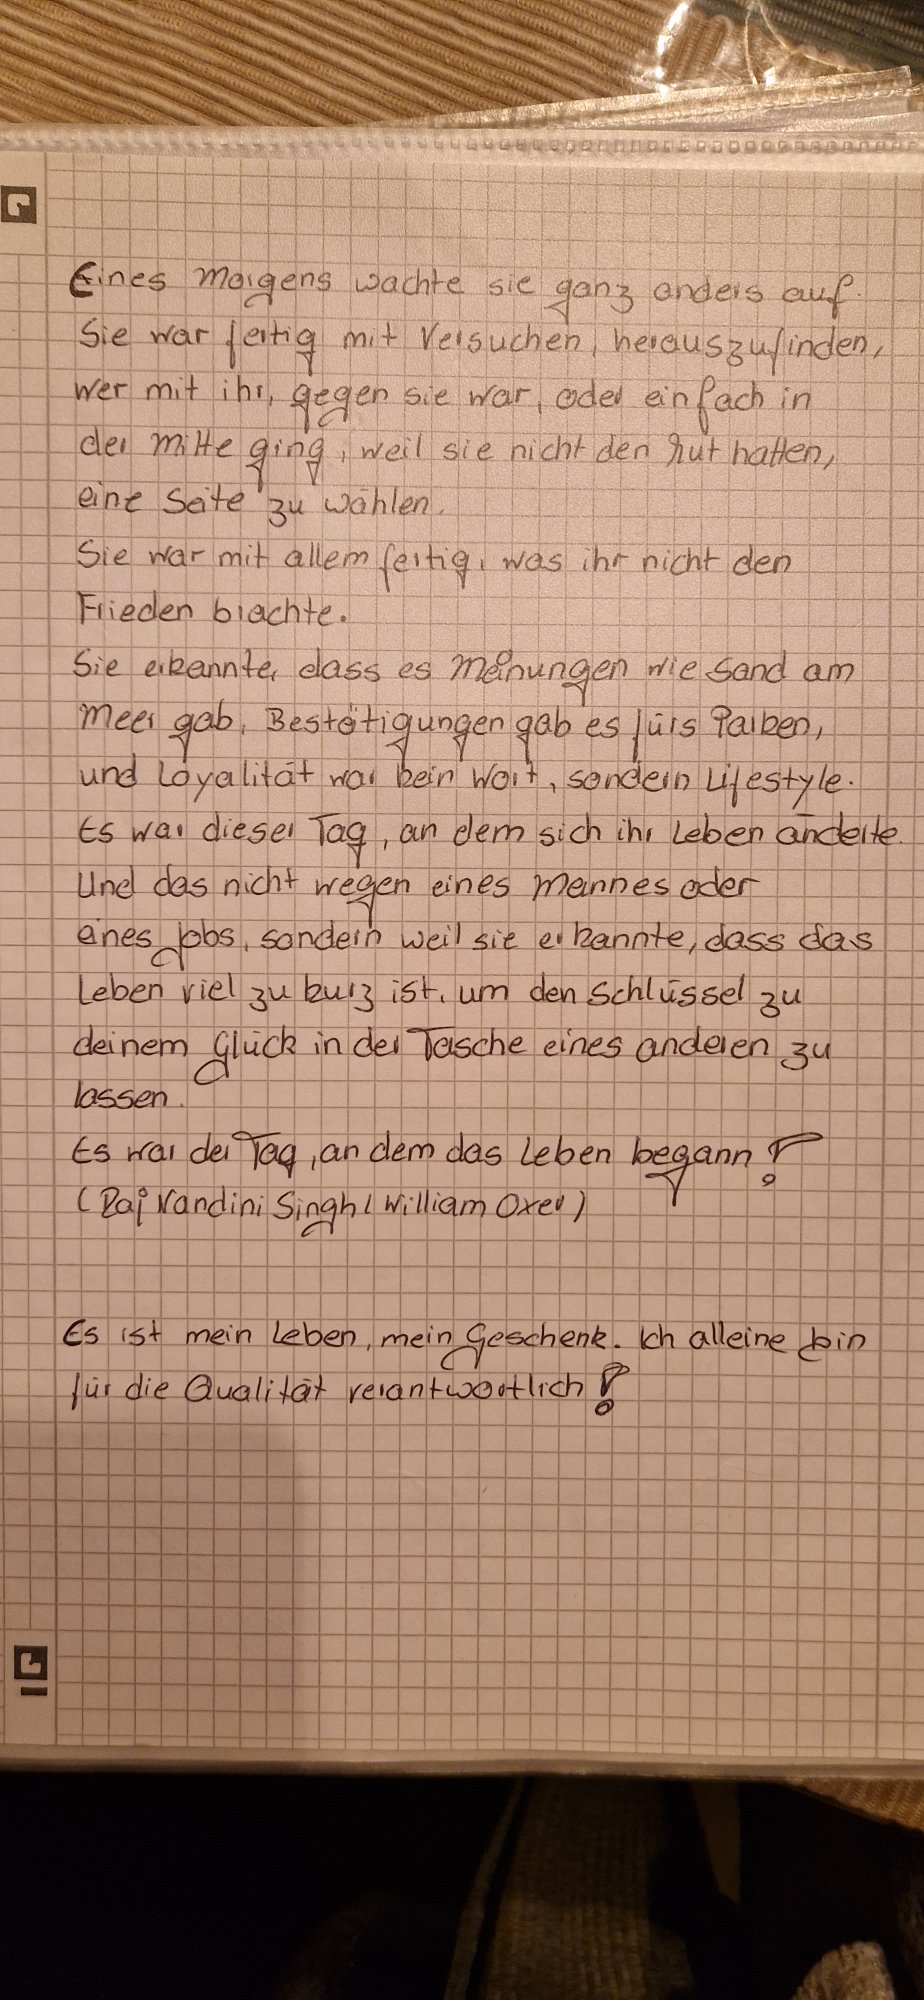 Eines Morgens wachte sie ganz anders auf.
Sie war fertig mit Versuchen, herauszufinden,
wer mit ihr, gegen sie war, oder einfach in
der Mitte ging, weil sie nicht den Mut hatten,
eine Seite zu wählen.
Sie war mit allem fertig, was ihr nicht den
Frieden brachte.
Sie erkannte, dass es Meinungen wie Sand am
Meer gab, Bestätigungen gab es fürs Parken,
und Loyalität war kein Wort, sondern Lifestyle.
Es war dieser Tag, an dem sich ihr Leben änderte.
Und das nicht wegen eines Mannes oder
eines Jobs, sondern weil sie erkannte, dass das
Leben viel zu kurz ist, um den Schlüssel zu
deinem Glück in der Tasche eines anderen zu
lassen.
Es war der Tag, an dem das Leben begann!
(Raj Nandini Singh / William Oxer)
Es ist mein Leben, mein Geschenk. Ich alleine bin
für die Qualität verantwortlich!